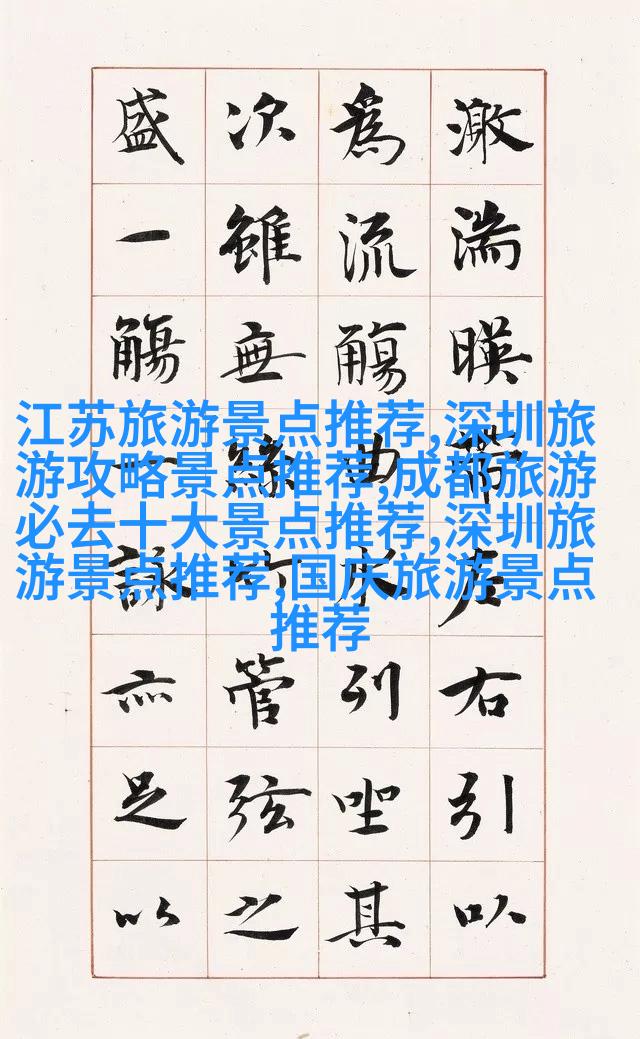 激湍暎帶左右引以
為流觴曲水列坐其
次雖無絲竹管弦之
盛一觴一詠亦足以
江苏旅游景点推荐,深圳旅
游攻略景点推荐,成都旅游
必去十大景点推荐,深圳旅
游景点推荐,国庆旅游景点
推荐